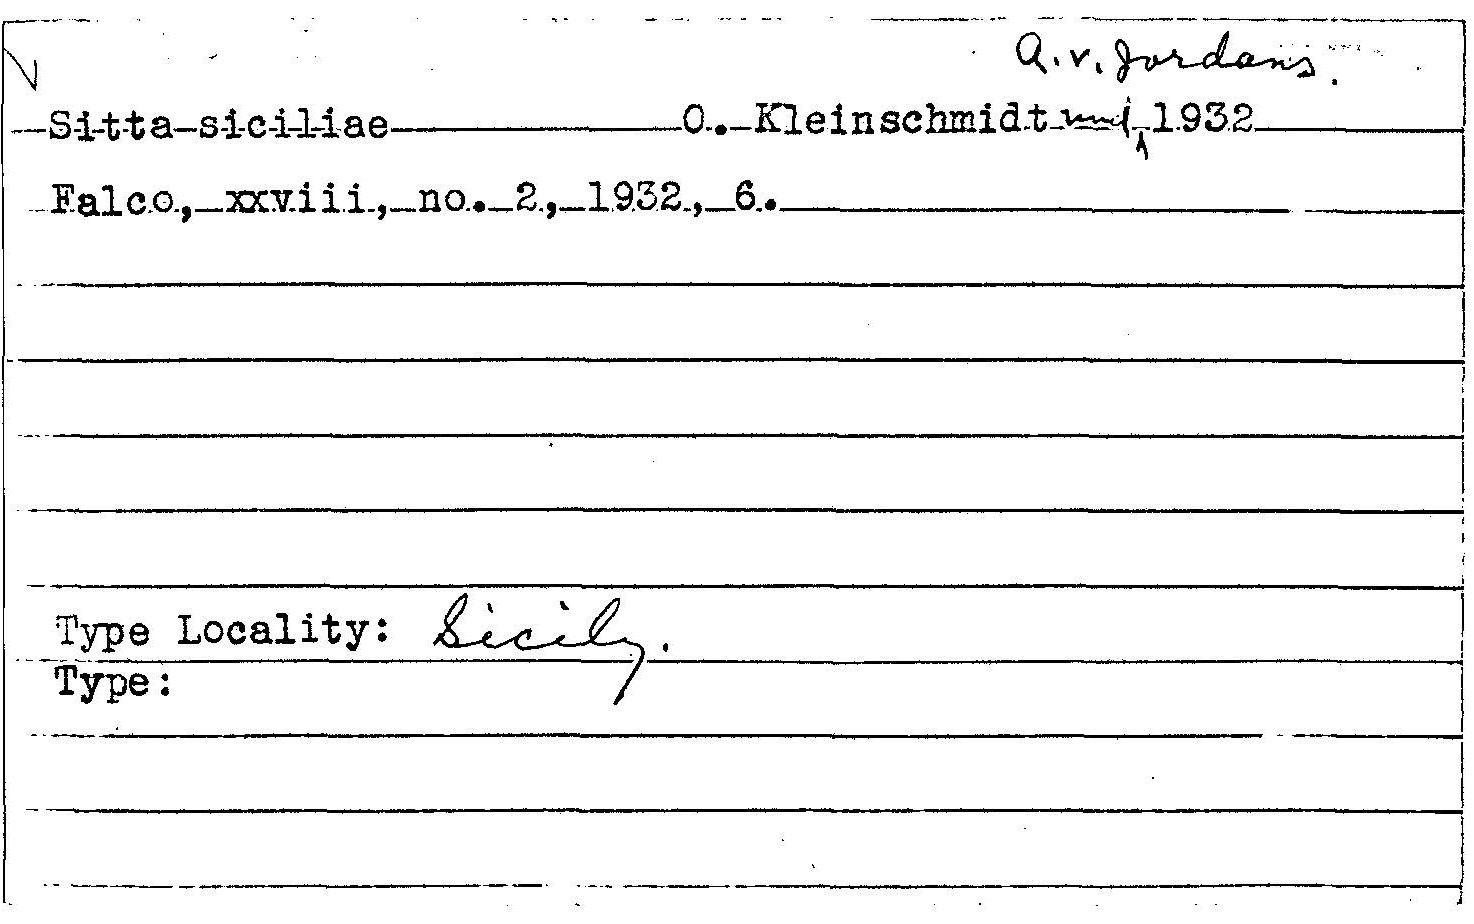 A. v. Jordans.
Sitta siciliae O. Kleinschmidt und 1932
Falco, xxviii, no. 2, 1932, 6.
Type Locality: Sicily.
Type: